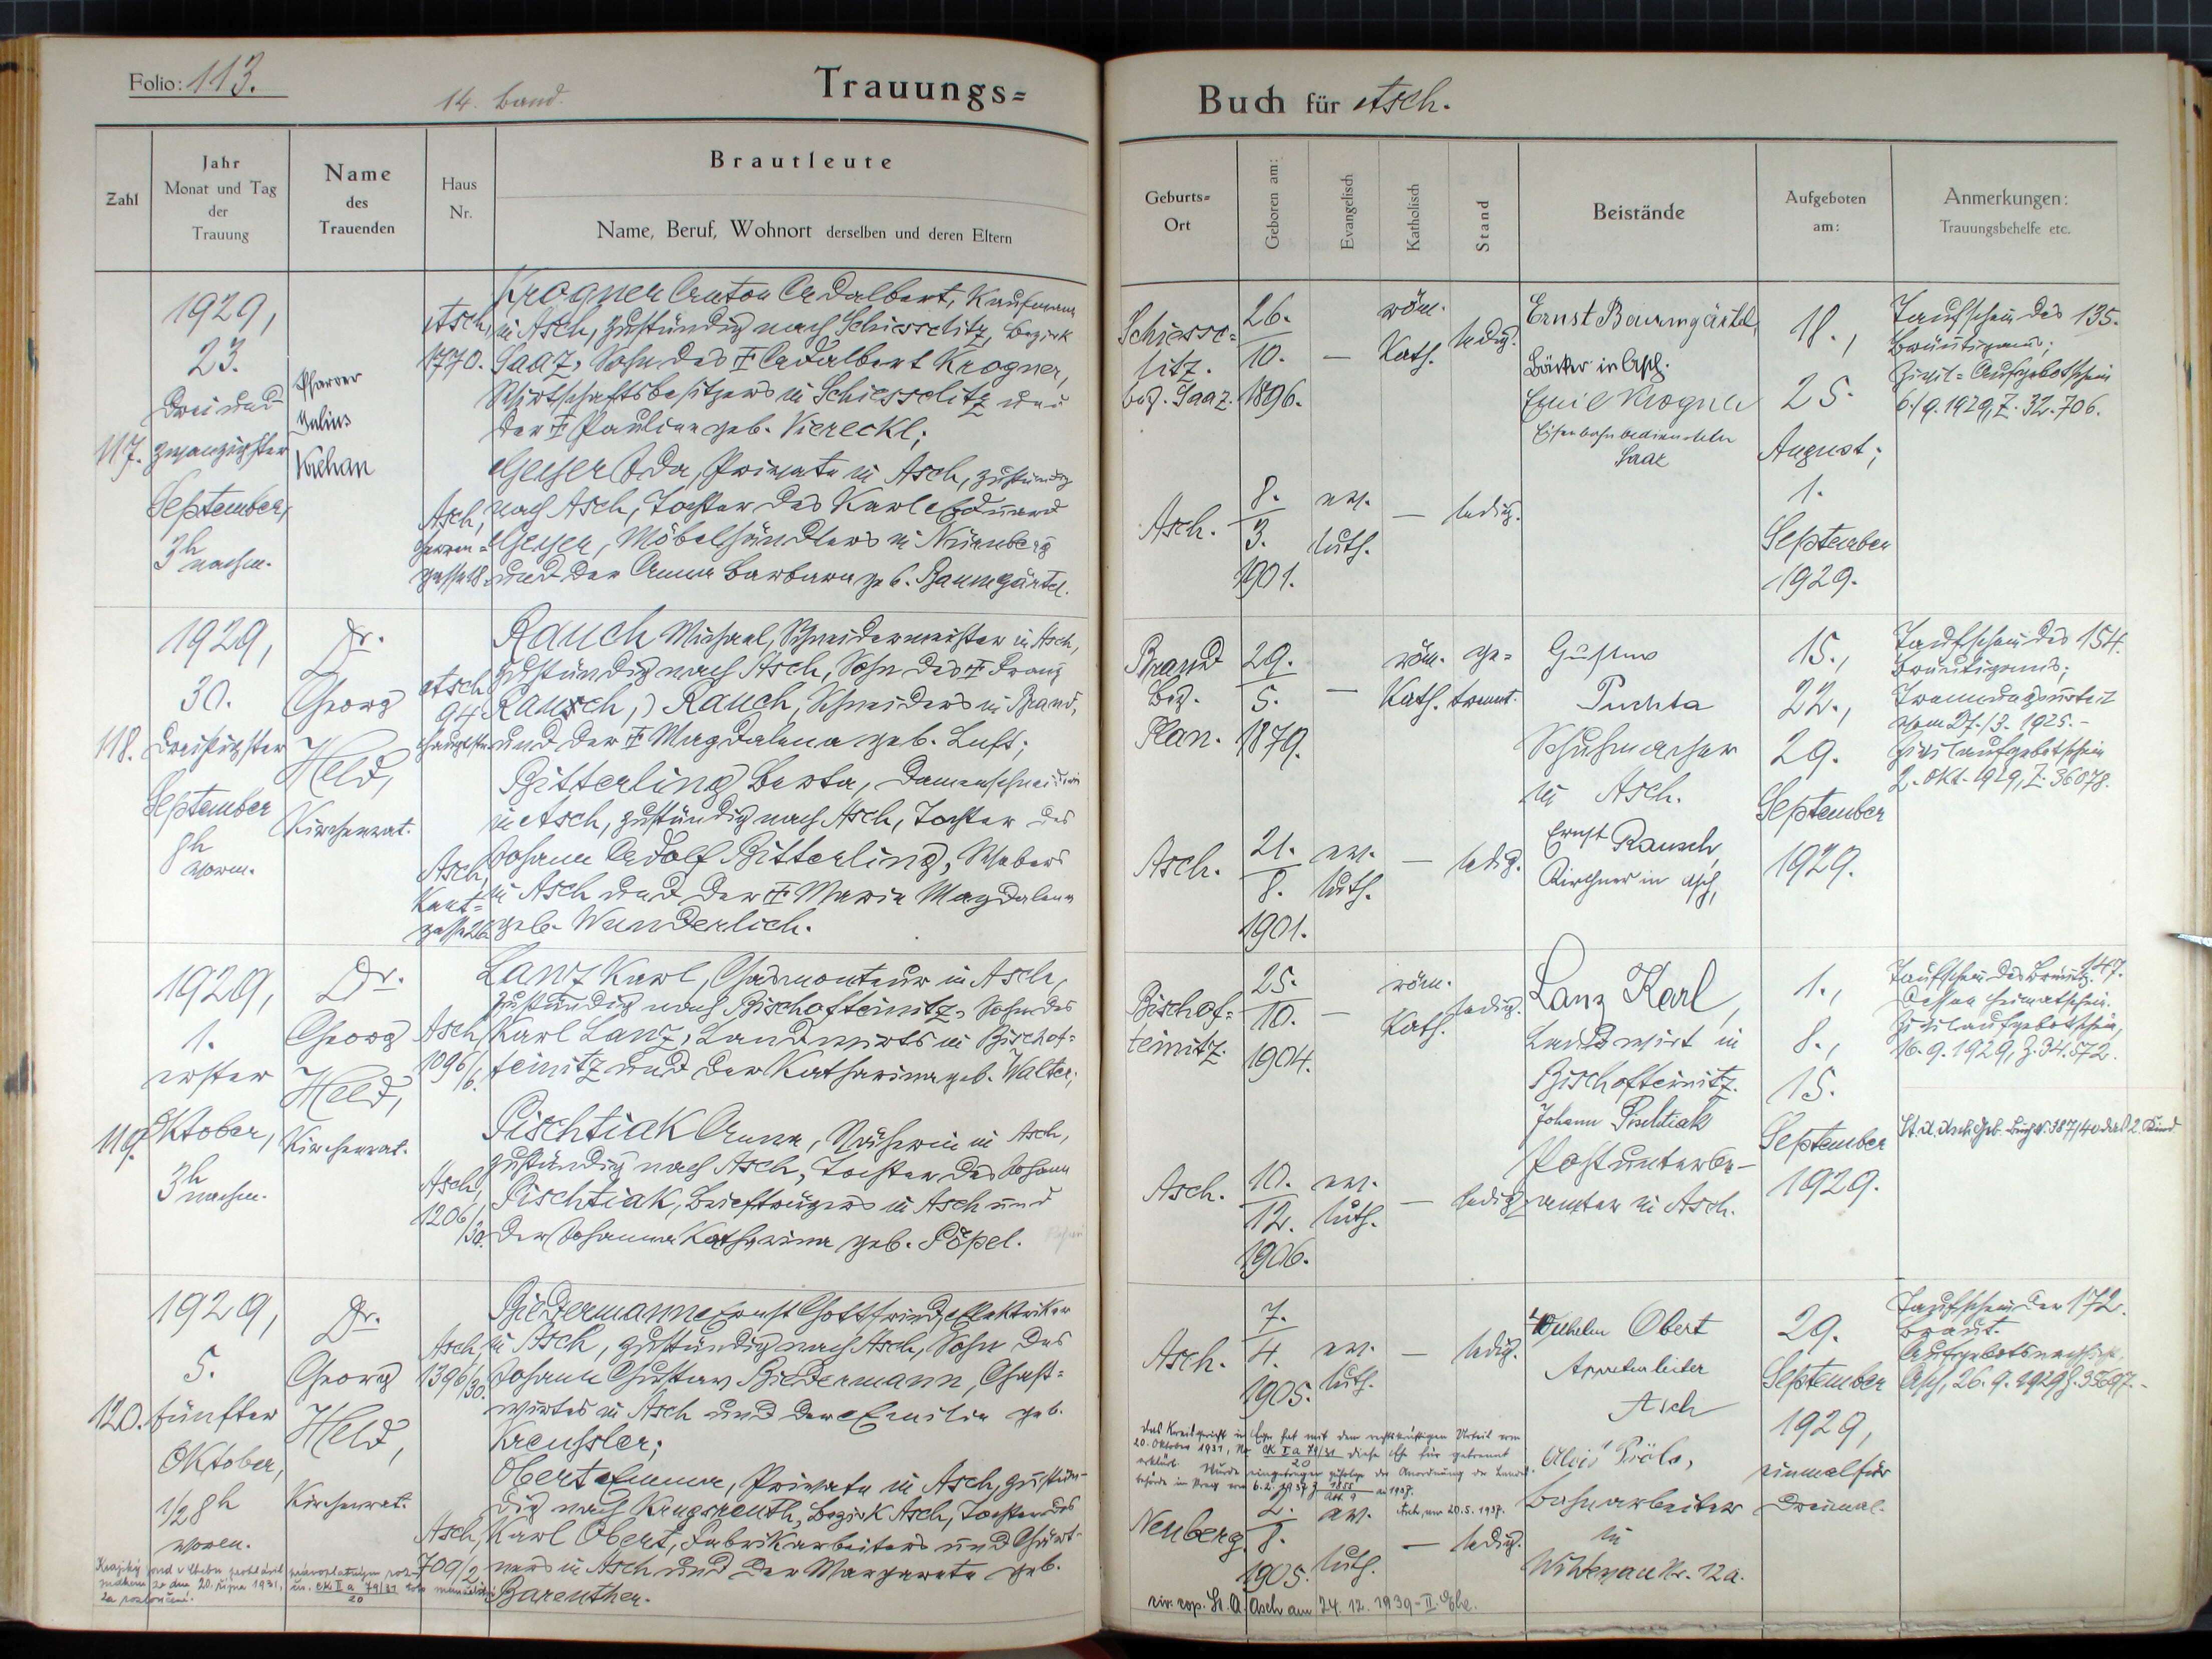 Folio: 113.
14. Band.
Trauungs=
Zahl
Jahr
Monat und Tag
der
Trauung
Name
des
Trauenden
Haus
Nr.
Brautleute
Name, Beruf, Wohnort derselben und deren Eltern
117.
1929,
23.
Drei und
zwanzigster
September,
3h
nachm.
Pfarrer
Julius
Asch,
1770.
Krogner Anton Adalbert, Kaufmann
in Asch, zuständig nach Schiesselitz, Bezirk
Saaz, Sohn des † Adalbert Krogner,
Wirtschaftsbesitzers in Schiesselitz und
der † Pauline geb. Viereckl;
Asch,
Herren=
gasse 18.
Geyer Ida, Private in Asch, zuständig
nach Asch, Tochter des Karl Eduard
Geyer, Möbelhändlers in Nürnberg
und der Anna Barbara geb. Baumgärtel.
118.
1929,
30.
dreißigster
September
8h
vorm.
Dr.
Georg
Held,
Kirchenrat.
Asch
94
Hauptstr.
Rauch Michael, Schneidermeister in Asch,
zuständig nach Asch, Sohn des † Franz
Rausch,) Rauch, Schneiders in Brand,
und der † Magdalena geb. Luft;
Asch,
Kant=
gasse 26
Bitterling Berta, Damenschneiderin
in Asch, zuständig nach Asch, Tochter des
Johann Adolf Bitterling, Webers
in Asch und der † Maria Magdalena
geb. Wunderlich.
119.
1929,
1.
erster
Oktober,
3h
nachm.
Dr.
Georg
Held,
Kirchenrat.
Asch,
1096/6.
Lanz Karl, Gasmonteur in Asch,
zuständig nach Bischofteinitz, Sohn des
Karl Lanz, Landwirts in Bischof=
teinitz und der Katharina geb. Walter;
Asch,
1206/30.
Pischtiak Anna, Näherin in Asch,
zuständig nach Asch, Tochter des Johann
Pischtiak, Briefträgers in Asch und
der Johanna Katharina geb. Pöpel.
120.
1929,
5.
fünfter
Oktober,
1/2 8h
vorm.
Dr.
Georg
Held,
Kirchenrat.
Asch,
1396/30.
Biedermann Ernst Gottfried, Elektriker
in Asch, zuständig nach Asch, Sohn des
Johann Gustav Biedermann, Gast=
wirtes in Asch und der Emilie geb.
Kreussler;
Asch,
709/2
Obert Emma, Private in Asch, zustän=
dig nach Krugsreuth, Bezirk Asch, Tochter des
Karl Obert, Fabrikarbeiters und
in Asch und der Margareta geb.
Bareuther.
Krajský soud v Chebu prohlásil pravoplatným roz-
sudkem ze dne 20. října 1931, čís. Ck II a 79/31/20 toto manželství
za rozloučené.
Buch für Asch.
Geburts=
Ort
Geboren am:
Evangelisch
Katholisch
Stand
Beistände
Aufgeboten
am:
Anmerkungen:
Trauungsbehelfe etc.
Schiesse=
litz.
bez. Saaz.
26.
10.
1896.
—
röm.
Kath.
ledig.
Ernst Baumgärtel,
Bäcker in Asch.
Emil Krogner
Eisenbahnbediensteter
Saaz
18.,
25.
August;
1.
September
1929.
Taufschein des 135.
Bräutigams;
Zivil=Aufgebotschein
6./9. 1929, Z. 32.706.
Asch.
8.
3.
1901.
ev.
luth.
—
ledig.
Brand
Bez.
Plan.
29.
5.
1879.
—
röm.
Kath.
ge=
trennt.
Gustav
Puchta
Schuhmacher
in Asch.
Ernst Rausch,
Kirchner in Asch,
15.,
22.,
29.
September
1929.
Taufschein des 154.
Bräutigams;
Trennungsurteil
vom 27./3. 1925.-
Zivilaufgebotschein
2. Okt. 1929, Z. 36078.
Asch.
21.
8.
1901.
ev.
luth.
—
ledig.
Bischof=
teinitz.
25.
10.
1904.
—
röm.
Kath.
ledig.
Lanz Karl,
Landwirt in
Bischofteinitz.
Johann Pischtiak
Postunterbe-
amter in Asch.
1.,
8.,
15.
September
1929.
Taufschein des Bräutig. 147.
Dessen Heimatschein.
Zivilaufgebotschein,
16. 9. 1929, Z. 34.572.
Asch.
10.
12.
1906.
ev.
luth.
—
ledig.
Asch.
7.
4.
1905.
ev.
luth.
—
ledig.
Wilhelm Obert
Appreturleiter
Asch
Alois
Bahnarbeiter
in
Wildenau Nr. 12a.
29.
September
1929,
einmal für
dreimal.
Taufschein der 172.
Braut.
Das Kreisgericht in Eger hat mit dem rechtskräftigen Urteil vom
20. Oktober 1931, Nr. Ck II a 79/31/20 diese Ehe für getrennt
erklärt. Wurde eingetragen zufolge der Anordnung der Landes-
behörde in Prag vom
Asch, am 20.5.1937.
Neuberg.
2.
8.
1905.
ev.
luth.
—
ledig.
ziv. cop. St. A. Asch am 24. 12. 1939 - II. Ehe.